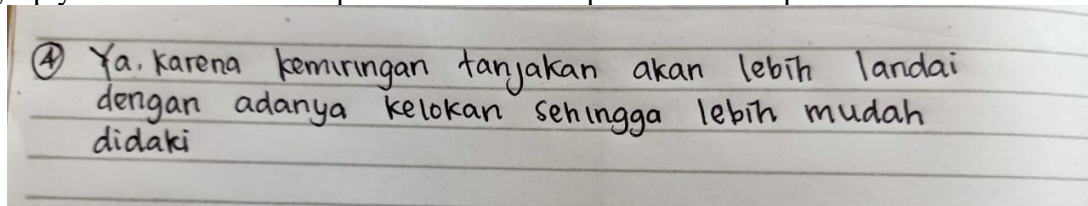 ④ Ya. Karena kemiringan tanjakan akan lebih landai
dengan adanya kelokan sehingga lebih mudah
didaki